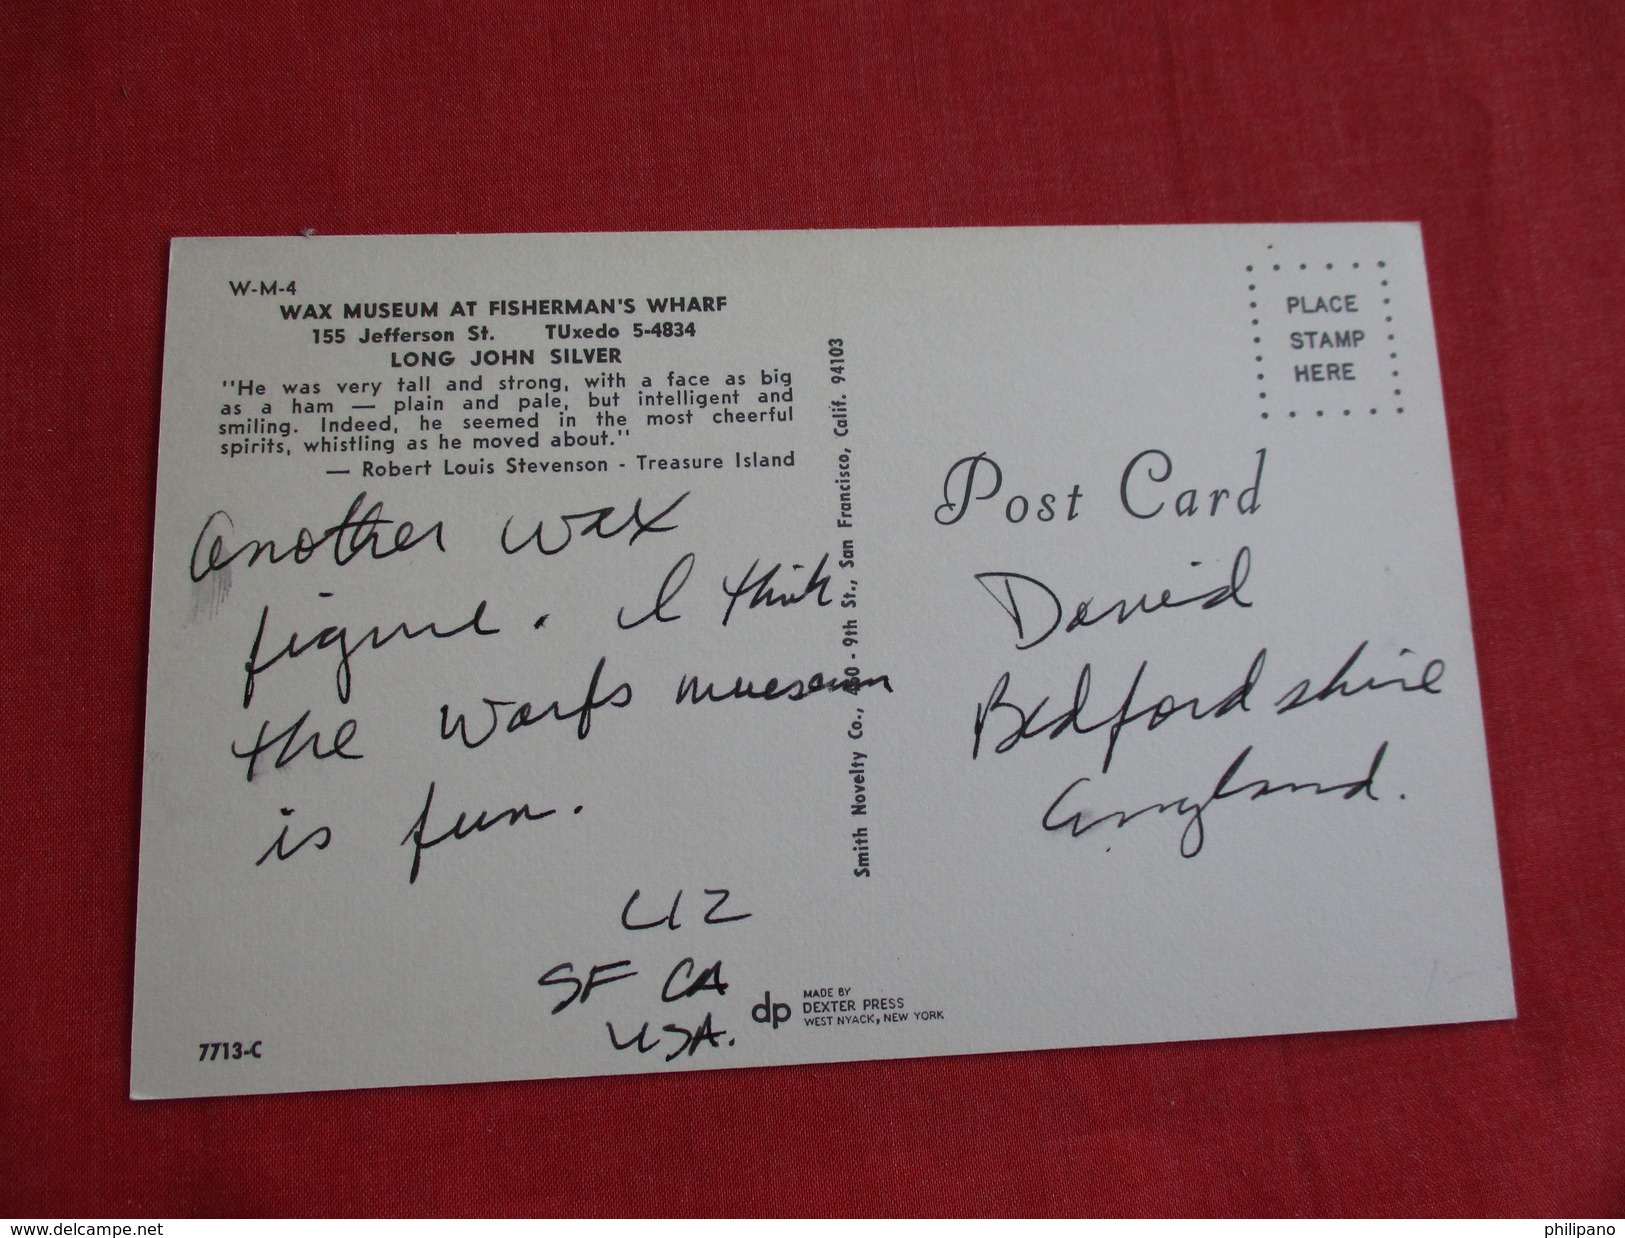 W-M-4
WAX MUSEUM AT FISHERMAN'S WHARF
155 Jefferson St. TUxedo 5-4834
LONG JOHN SILVER
"He was very tall and strong, with a face as big
as a ham — plain and pale, but intelligent and
smiling. Indeed, he seemed in the most cheerful
spirits, whistling as he moved about."
— Robert Louis Stevenson - Treasure Island
Another wax
figure. I think
the Warfs museum
is fun.
LIZ
SF CA
USA.
7713-C
dp
MADE BY
DEXTER PRESS
WEST NYACK, NEW YORK
Smith Novelty Co., 460 - 9th St., San Francisco, Calif. 94103
PLACE
STAMP
HERE
Post Card
David
Bedfordshire
England.
www.delcampe.net
philipano